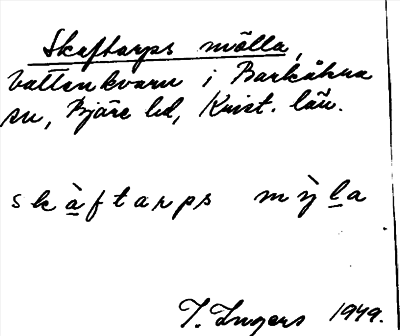 Skaftarps mölla,
vattenkvarn i Barkåkra
sn, Bjäre hd, Krist. län.
skàftarps mỳla
I. Ingers 1949.